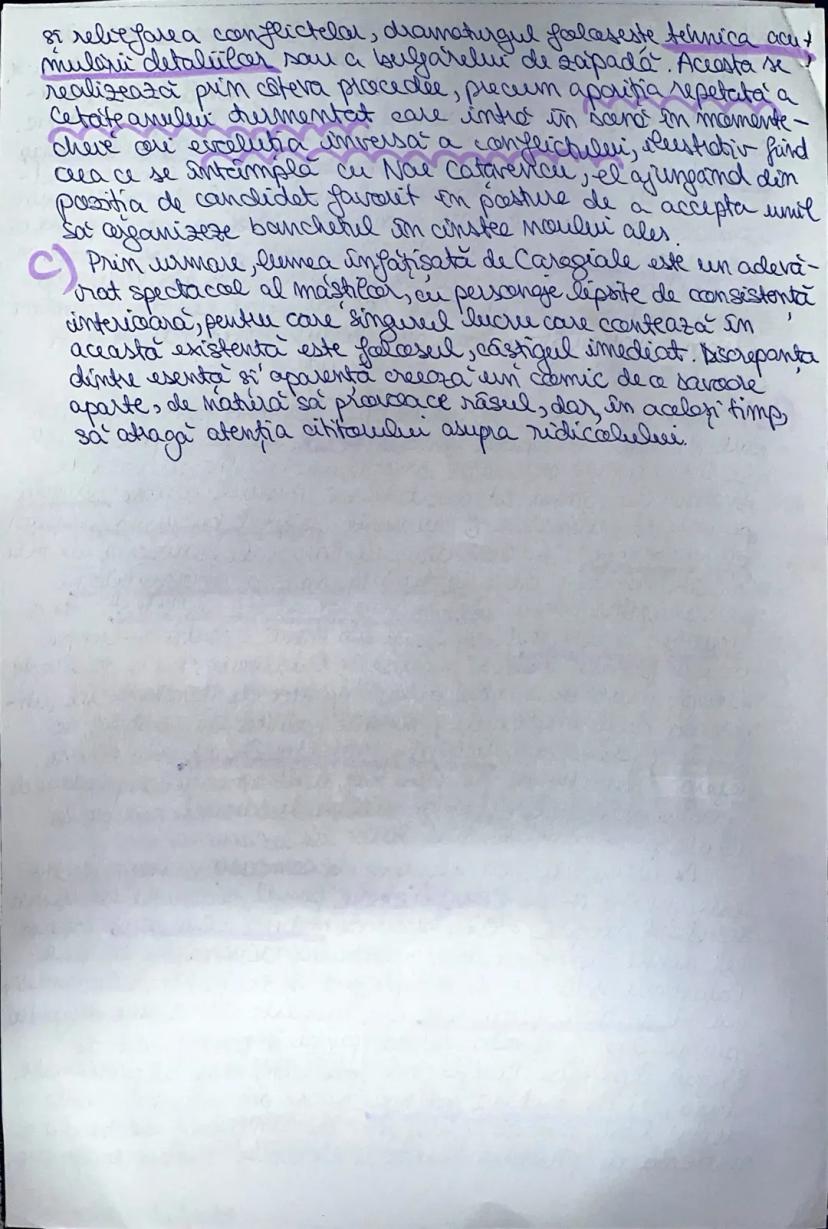 și reliefarea conflictelor, dramaturgul folosește tehnica acu-
mulării detaliilor sau a bulgărelui de zăpadă. Aceasta se
realizează prin câteva procedee, precum apariția repetată a
Cetățeanului turmentat care intră în scenă în momente-
cheie ori evoluția inversă a conflictului, ilustrativ fiind
ceea ce se întâmplă cu Nae Cațavencu, el ajungând din
poziția de candidat favorit în postura de a accepta umil
să organizeze banchetul în cinstea noului ales.
c) Prin urmare, lumea înfățișată de Caragiale este un adevă-
rat spectacol al măștilor, cu personaje lipsite de consistență
interioară, pentru care singurul lucru care contează în
această existență este folosul, câștigul imediat. Discrepanța
dintre esență și aparență creează un comic de o savoare
aparte, de natură să provoace râsul, dar, în același timp,
să atragă atenția cititorului asupra ridicolului.